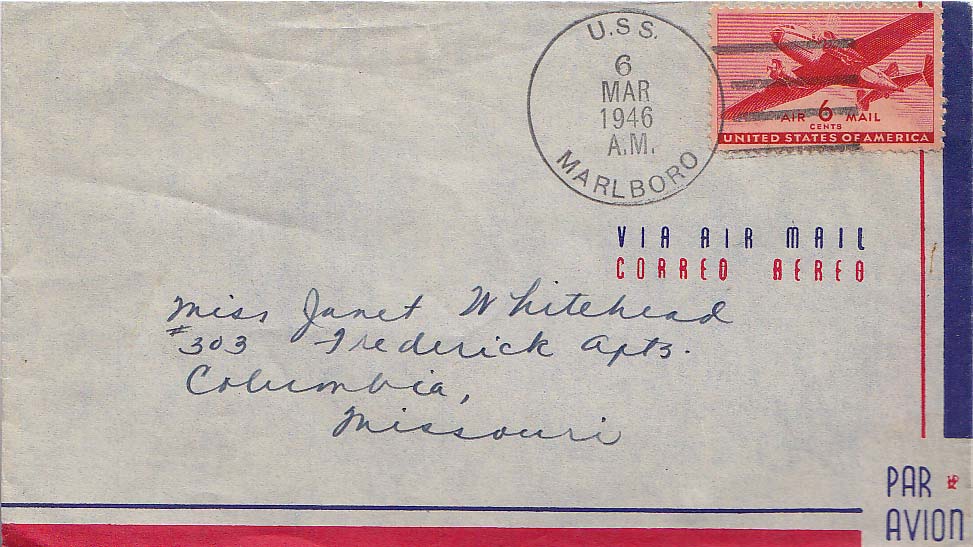 U.S.S.
6
MAR
1946
A.M.
MARLBORO
AIR 6 MAIL
CENTS
UNITED STATES OF AMERICA
VIA AIR MAIL
CORREO AEREO
Miss Janet Whitehead
#303 Frederick Apts.
Columbia,
Missouri
PAR
AVION